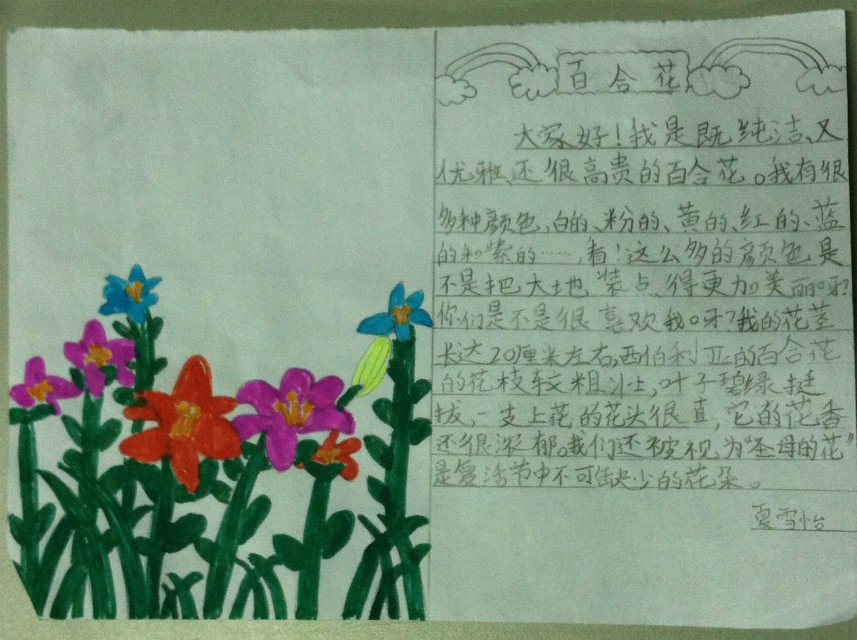 百合花
大家好！我是既纯洁、又
优雅、还很高贵的百合花。我有很
多种颜色，白的、粉的、黄的、红的、蓝
的和紫的……，看！这么多的颜色是
不是把大地装点得更加美丽呀？
你们是不是很喜欢我呀？我的花茎
长达20厘米左右，西伯利亚的百合花
的花枝较粗壮，叶子碧绿挺
拔，一支上花的花头很直，它的花香
还很浓郁。我们还被视为“圣母的花”
是复活节中不可缺少的花朵。
夏雪怡